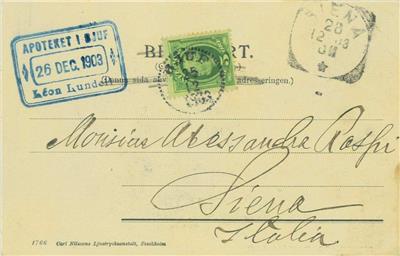 APOTEKET I BJUF
26 DEC. 1903
Léon Lundell
BREFKORT.
(Denna sida adresseringen.)
BJUF
1903
SIENA
28
12
Monsieur Alessandra Raspi
Siena
Italia
1766 Carl Nilssons Ljustrycksanstalt, Stockholm